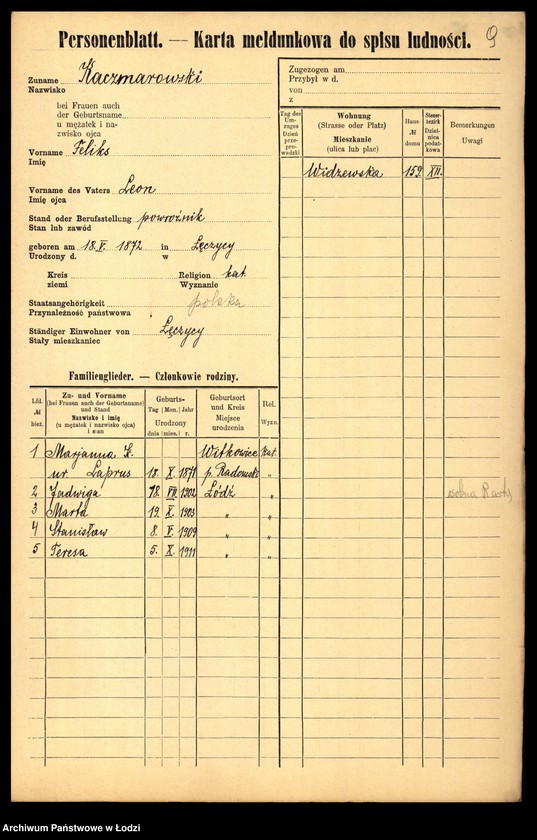 Personenblatt. — Karta meldunkowa do spisu ludności.
9
Zuname Kaczmarowski
Nazwisko
bei Frauen auch
der Geburtsname
u mężatek i na-
zwisko ojca
Vorname Feliks
Imię
Vorname des Vaters Leon
Imię ojca
Stand oder Berufsstellung powroźnik
Stan lub zawód
geboren am 18. V. 1872 in Łęczycy
Urodzony d. w
Kreis Religion kat.
ziemi Wyznanie
Staatsangehörigkeit polska
Przynależność państwowa
Ständiger Einwohner von Łęczycy
Stały mieszkaniec
Zugezogen am
Przybył w d.
von
z
Tag des Um-zuges Dzień prze-pro-wadzki
Wohnung
(Strasse oder Platz)
Mieszkanie
(ulica lub plac)
Haus-№ domu
Steuer-bezirk Dziel-nica podat-kowa
Bemerkungen
Uwagi
Widzewska 159 XII.
Familienglieder. — Członkowie rodziny.
Lfd. № bież.
Zu- und Vorname
(bei Frauen auch der Geburtsname)
und Stand
Nazwisko i imię
(u mężatek i nazwisko ojca)
i stan
Geburts-
Tag Mon. Jahr
Urodzony
dnia mies. r.
Geburtsort
und Kreis
Miejsce
urodzenia
Rel.
Wyzn.
1 Marjanna K. Witkowice kat.
ur. Laprus 18. X. 1871 p. Radomsk „
2 Jadwiga 18. VII. 1902 Łódź „
3 Marta 19. X. 1903 „ „
4 Stanisław 8. V. 1909 „ „
5 Teresa 5. X. 1911 „ „
Archiwum Państwowe w Łodzi